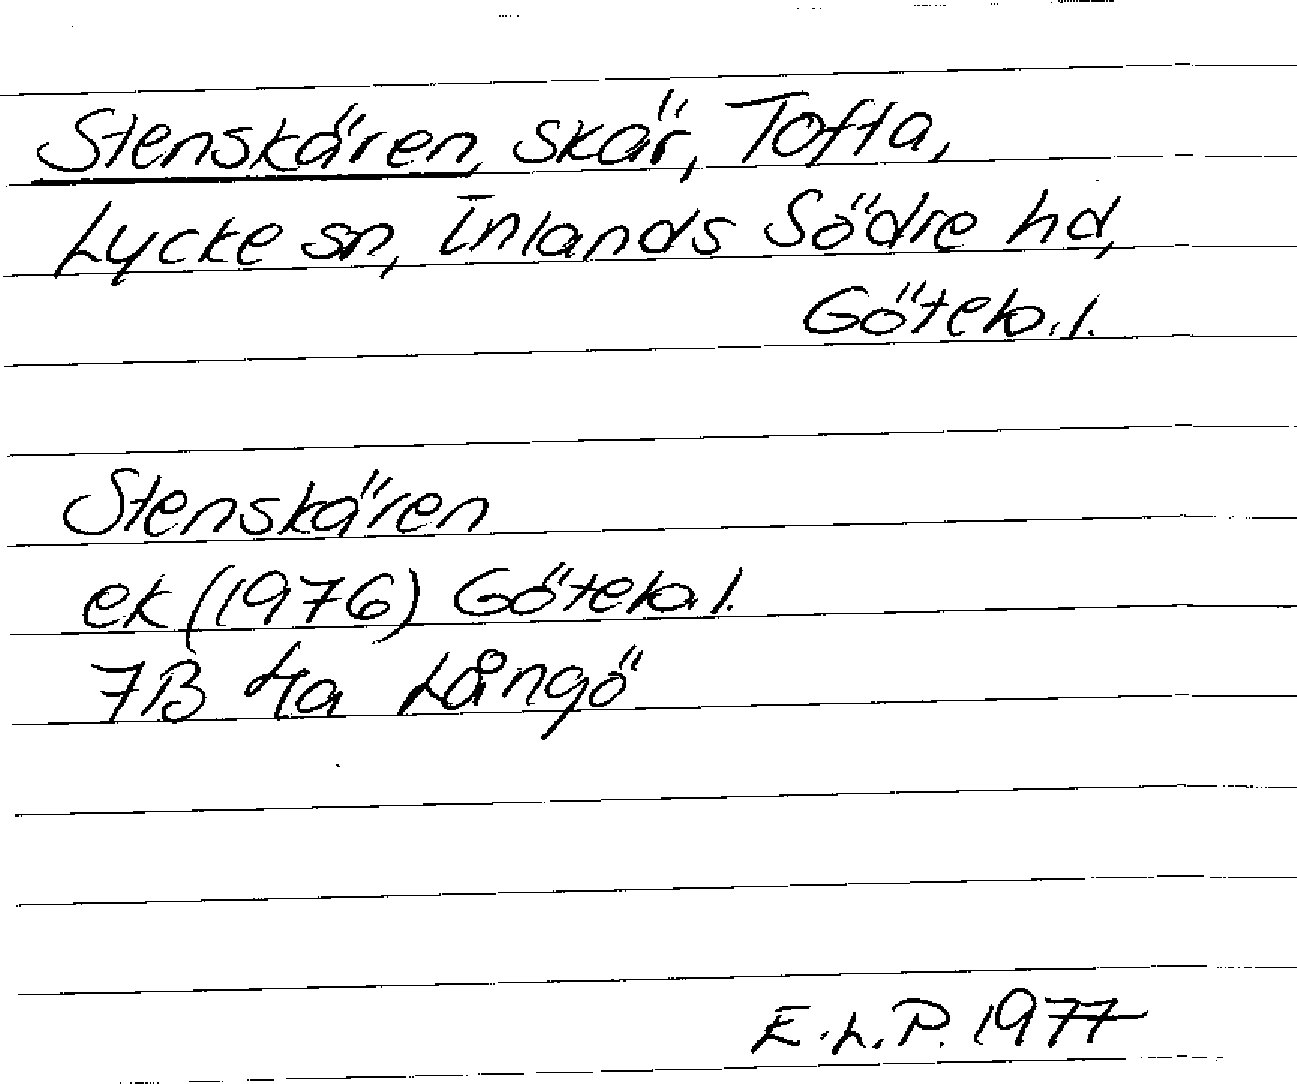 Stenskären, skär, Tofta,
Lycke sn, Inlands Södre hd,
Göteb.l.
Stenskären
ek (1976) Göteb.l.
7B 4a Långö
E.L.P. 1977